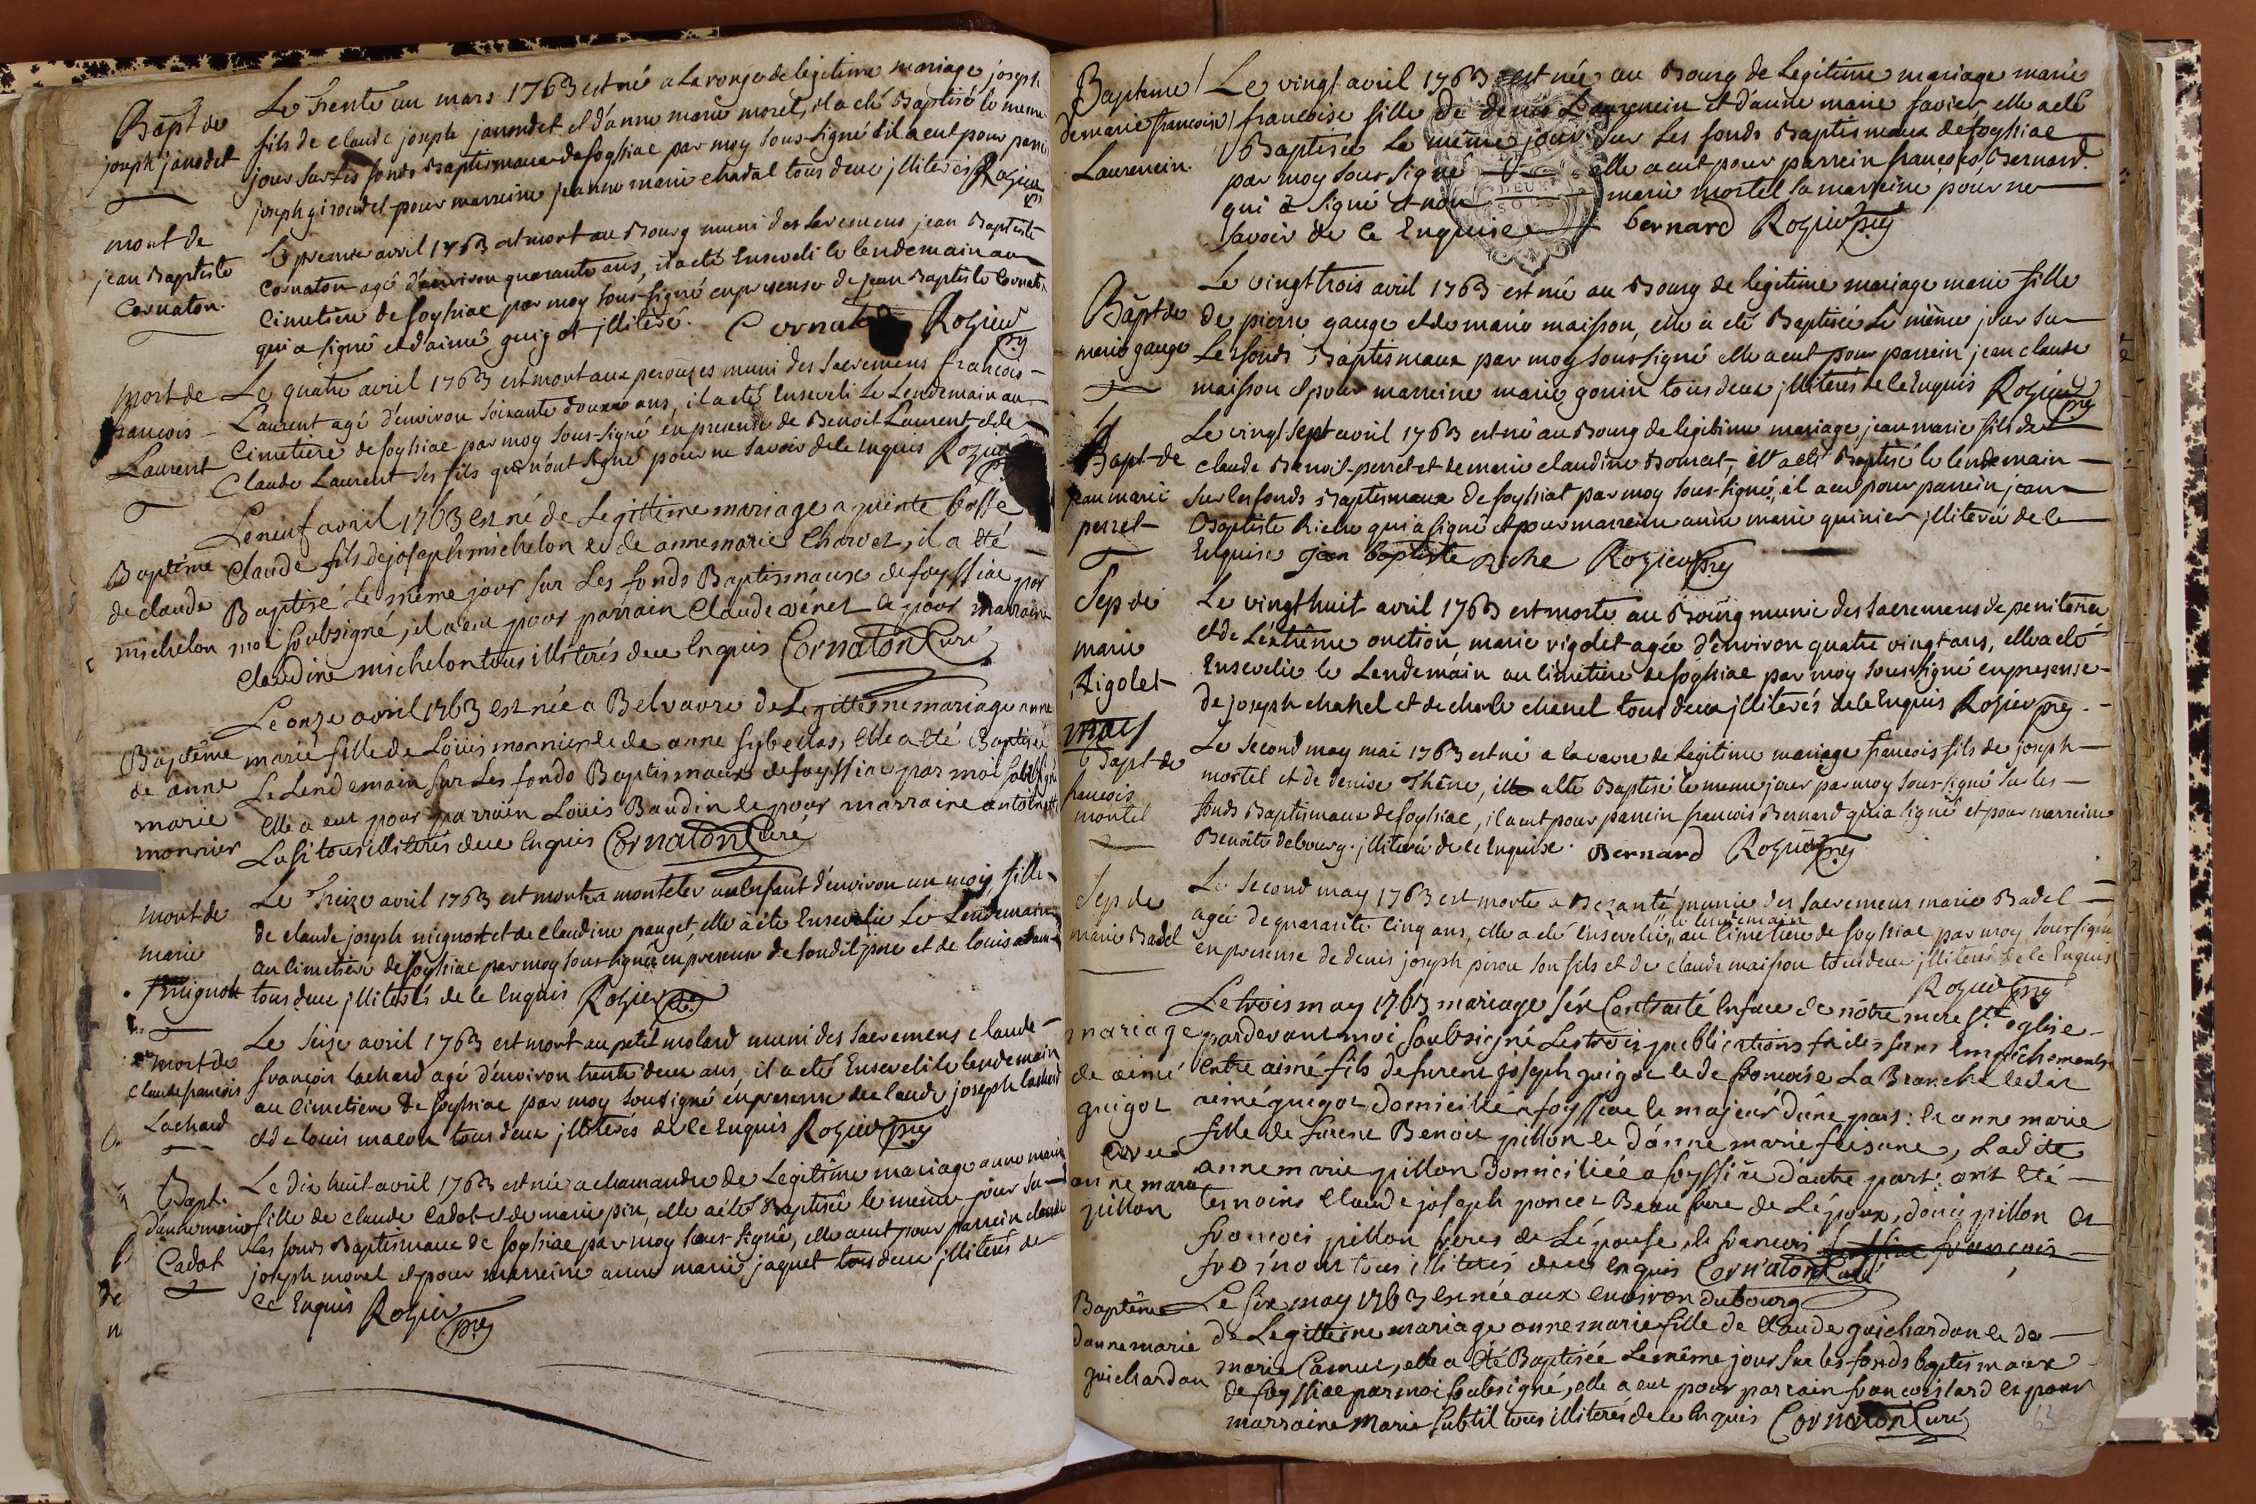 Bapt de
joseph janodet
Le Trente un mars 1763 est né a la ronge de legitime mariage joseph
fils de claude joseph janodet et d'anne marie moret, il a eté Baptisé le meme
jour sur Les fonds Baptismaux de foyssiac par moy sous-signé il a eut pour parein
joseph giroudet pour marreine jeanne marie chatal tous deux jlliterés Rozier
pre
mort de
jean Baptiste
Cornaton
Le premier avril 1763 est mort au Bourg muni des sacremens jean Baptiste
Cornaton agé d'environ quarante ans, il a eté Enseveli le lendemain au
Cimetiere de foyssiac par moy sous-signé en presense de jean Baptiste Cornaton
qui a signé et d'aimé guigot jlliteré. Cornaton Rozier
pre
mort de
francois
Laurent
Le quatre avril 1763 est mort aux perouzes muni des Sacremens francois
Laurent agé d'environ soixante douze ans, il a eté Enseveli Le Lendemain au
Cimetiere de foyssiac par moy sous-signé en presense de Benoit Laurent et de
Claude Laurent ses fils qui n'ont signé pour ne savoir de le Enquis Rozier
Baptême
de claude
michelon
Le neuf avril 1763 est né de Legittime mariage a pointe bosse
Claude fils de joseph michelon et de anne marie Charvet, il a été
Baptisé Le même jour sur Les fonds Baptismaux de foyssiac par
moi soubsigné, il a eu pour parrain Claude vénet et pour marraine
Claudine michelon tous illiterés de ce Enquis Cornaton Curé
Baptême
de anne
marie
monnier
Le onze avril 1763 est née a Belvavre de Legittime mariage anne
marie fille de Loüis monnier et de anne sybellas, elle a eté Baptisé
Le Lendemain sur Les fonds Baptismaux de foyssiac par moi soubsigné
elle a eut pour parrain Loüis Baudin et pour marraine antoinette
Lusi tous illiterés de ce Enquis Cornaton Curé
mort de
marie
mignot
Le Treize avril 1763 est morte a monteler un Enfant d'environ un mois fille
de claude joseph mignot et de claudine pauget, elle a eté Ensevelie Le Lendemain
au Cimetiere de foyssiac par moy sous-signé en presense de son dit pere et de louis
tous deux jlliterés de le Enquis Rozier pre
mort de
Claude francois
Lachard
Le seize avril 1763 est mort au petit molard muni des Sacremens claude
françois lachard agé d'environ trente deux ans il a eté Enseveli le lendemain
au cimetiere de foyssiac par moy sousigné en presense de claude joseph lachard
et de louis macon tous deux jlliterés de le Enquis Rozier pre
Bapt.
d'anne marie
Cadot
Le dix huit avril 1763 est née a chamandre de Legitime mariage anne marie
fille de claude Cadot et de marie pin, elle a eté Baptisée le même jour sur
Les fonds Baptismaux de foyssiac par moy sous-signé, elle a eut pour parrein claude
joseph morel et pour marreine anne marie jaquet tous deux jlliterés de
ce Enquis Rozier pre
Baptême
de marie francoise
Laurencin
Le vingt avril 1763 est née au Bourg de Legitime mariage marie
francoise fille de denis Laurencin et d'anne marie favier elle a eté
Baptisée Le même jour sur Les fonds Baptismaux de foyssiac
par moy sous-signé elle a eut pour parrein francois Bernard
qui a signé et non marie mortel sa marreine pour ne
savoir de ce Enquise bernard Rozier pre
Bapt de
marie gauge
Le vingt trois avril 1763 est né au Bourg de legitime mariage marie fille
de pierre gauge et de marie maisson, elle a eté Baptisée Le même jour sur
Les fonds Baptismaux par moy sous-signé elle a eut pour parrein jean claude
maisson et pour marreine marie gonin tous deux jlliterés de le Enquis Rozier
pre
Bapt de
jean marie
perret
Le vingt sept avril 1763 est né au Bourg de legitime mariage jean marie fils de
claude Benoit perret et de marie claudine Bornat, il a eté Baptisé le lendemain
sur les fonds Baptismaux de foyssiat par moy sous-signé, il a eu pour parrein jean
Baptiste Riche qui a signé et pour marreine anne marie quinier jlliterée de le
Enquise jean baptiste riche Rozier pre
Sep de
marie
Rigolet
Le vingt huit avril 1763 est morte au Bourg munie des sacremens de penitence
et de L'extrême onction marie rigolet agée d'environ quatre vingt ans, elle a eté
Ensevelie le Lendemain au cimetiere de foyssiac par moy sous-signé en presense
de joseph chanel et de charle chanel tous deux jlliterés de le Enquis Rozier pre.
may
Bapt de
francois
mortel
Le second may mai 1763 est né a la vavre de legitime mariage francois fils de joseph
mortel et de denise Thêne, il a eté Baptisé le meme jour par moy sous-signé sur les
fonds Baptismaux de foyssiac, il a eut pour parrein francois Bernard qui a signé et pour marreine
Benoite debourg. jlliterée de le Enquise. Bernard Rozier pre
Sep de
marie Badel
Le Second may 1763 est morte a Bezanté munie des Sacremens marie Badel
agée de quarante cinq ans, elle a eté Ensevelie le lendemain au cimetiere de foyssiac par moy sous-signé
en presense de denis joseph pirou son fils et de claude maisson tous deux jlliterés de le Enquis
Rozier pre
mariage
de aimé
guigot
avec
anne marie
pillon
Le trois may 1763 mariage a été Contracté en face de nôtre mere ste eglise
par devant moi soubsigné Les trois publications faites sans Empêchements
Entre aimé fils de furent joseph guigot et de francoise La Branche ledit
aimé guigot domicilié a foyssiac et majeur d'une part: et anne marie
fille de furent Benoit pillon et d'anne marie feisune, La dite
anne marie pillon Domiciliée a foyssiac d'autre part: ont été
temoins Claude joseph poncet Beau frere de L'époux, denis pillon et
francois pillon freres de L'épouse, et francois
tous illiterés de ce Enquis Cornaton Curé
Baptême
d'anne marie
guichardan
Le six may 1763 est née aux environ du bourg
de Legittime mariage anne marie fille de claude guichardan et de
marie Camus, elle a été Baptisée Le même jour sur les fonds baptismaux
de foyssiac par moi soubsigné, elle a eut pour parrain francois lard et pour
marraine marie subtil tous illiterés de ce Enquis Cornaton Curé
63